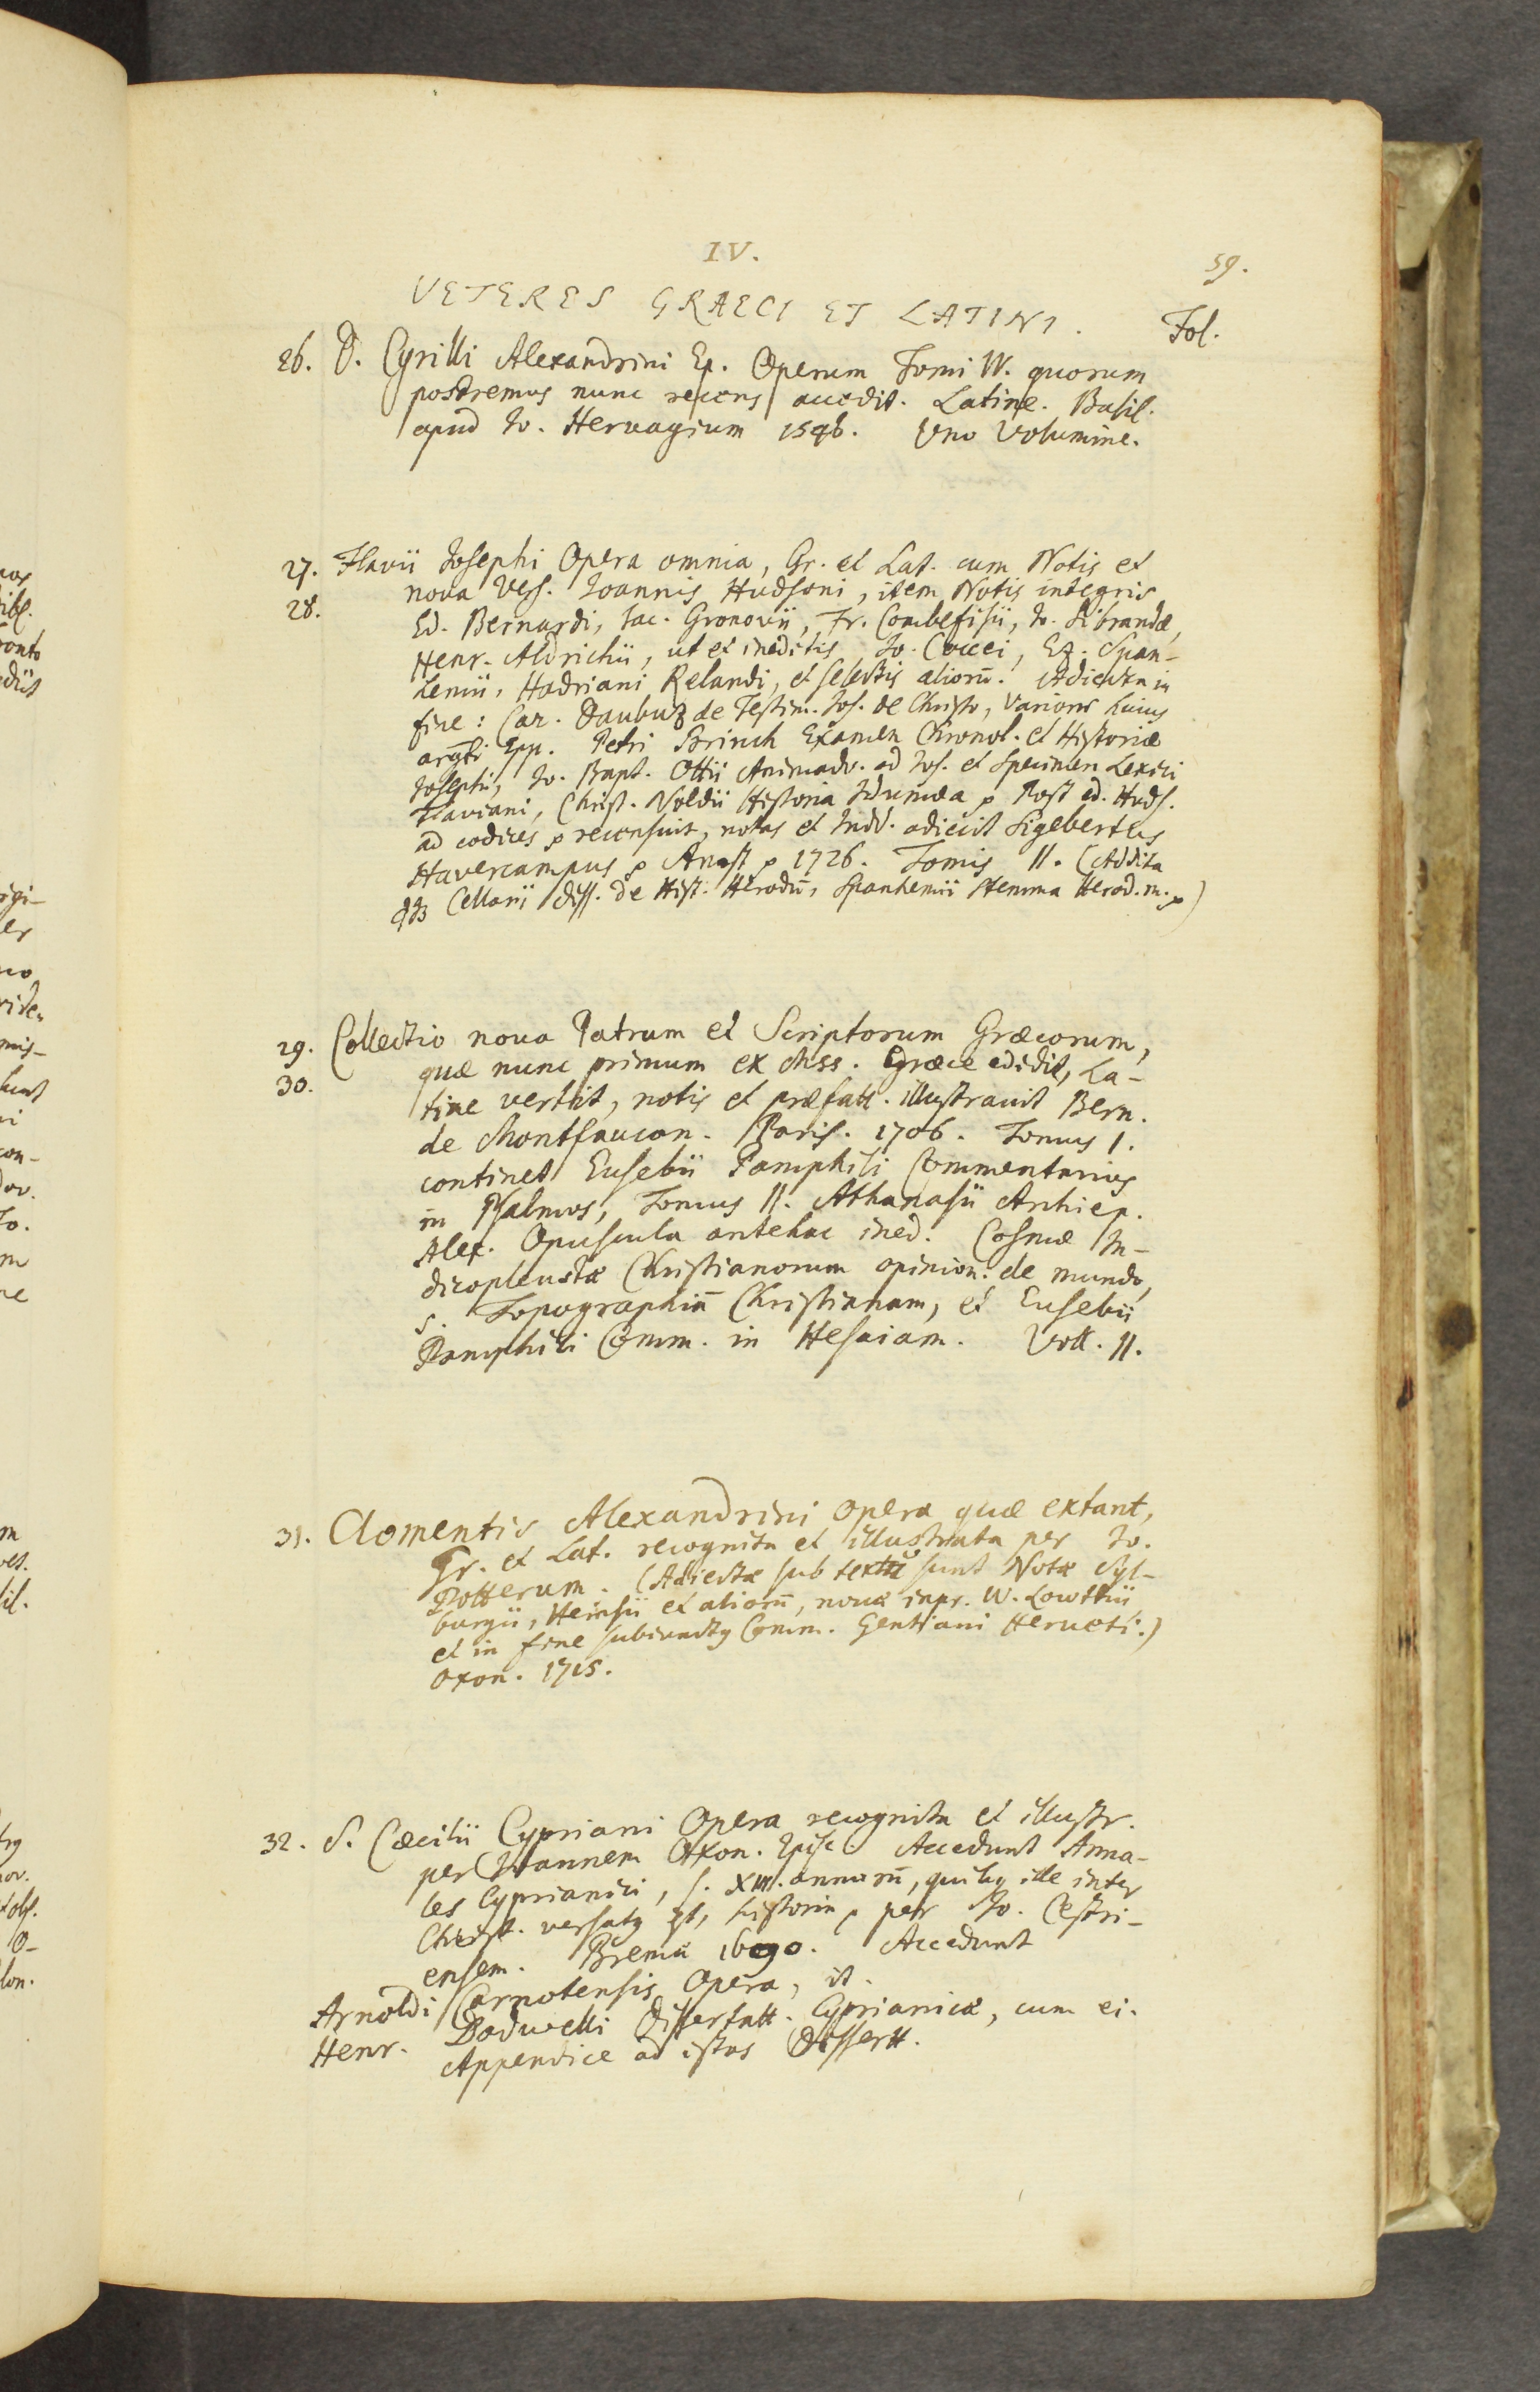 IV.
59.
VETERES GRAECI ET LATINI.
Fol.
26. D. Cyrilli Alexandrini Ep. Operum Tomi IV. quorum
postremus nunc recens accedit. Latine. Basil.
apud Io. Hervagium 1546. Uno Volumine.
27. Flavii Iosephi Opera omnia, Gr. et Lat. cum Notis et
28. nova Vers. Ioannis Hudsoni, item Notis integris
Ed. Bernardi, Iac. Gronovii, Fr. Combefisii, Io. Sibrandæ,
Henr. Aldrichii, ut et ineditis Io. Coccei, Ez. Span-
hemii, Hadriani Relandi, et selectis aliorū. Adiecta in
fine: Car. Daubuz de Testim. Ios. de Christo, Varior. huius
argti Epp. Petri Brinch Examen Chronol. et Historiæ
Iosephi, Io. Bapt. Ottii Animadv. ad Ios. et Specimen Lexici
Flaviani, Christ. Noldii Historia Idumæa p Post ed. Huds.
ad codices p recensuit, notas et Indd. adiecit Sigebertus
Havercampus p Amst p 1726. Tomis II. (Addita
Cellarii diss. de Hist. Herodū, Spanhemii Stemma Herod. m. p)
29. Collectio nova Patrum et Scriptorum Græcorum,
30. quæ nunc primum ex Mss. Græce edidit, La-
tine vertit, notis et præfatt. illustravit Bern.
de Montfaucon. Paris. 1706. Tomus I.
continet Eusebii Pamphili Commentarios
in Psalmos, Tomus II. Athanasii Archiep.
Alex. Opuscula antehac ined. Cosmæ In-
dicopleustæ Christianorum opinion. de mundo,
s. Topographiā Christianam, et Eusebii
Pamphili Comm. in Hesaiam. Voll. II.
31. Clementis Alexandrini Opera quæ extant,
Gr. et Lat. recognita et illustrata per Io.
Potterum. (Adiectæ sub textu sunt Notæ Syl-
burgii, Heinsii et aliorū, novæ inpr. W. Lowthii
et in fine subiunctus Comm. Gentiani Herveti.)
Oxon. 1715.
32. S. Cæcilii Cypriani Opera recognita et illustr.
per Ioannem Oxon. Episc. Accedunt Anna-
les Cyprianici, s. XIII. annorū, quibus ille inter
Christ. versatus est, historia p per Io. Cestri-
ensem. Bremæ 1690. Accedunt
Arnoldi Carnotensis Opera, it.
Henr. Dodwelli Dissertatt. Cyprianicæ, cum ei.
Appendice ad istas Dissertt.